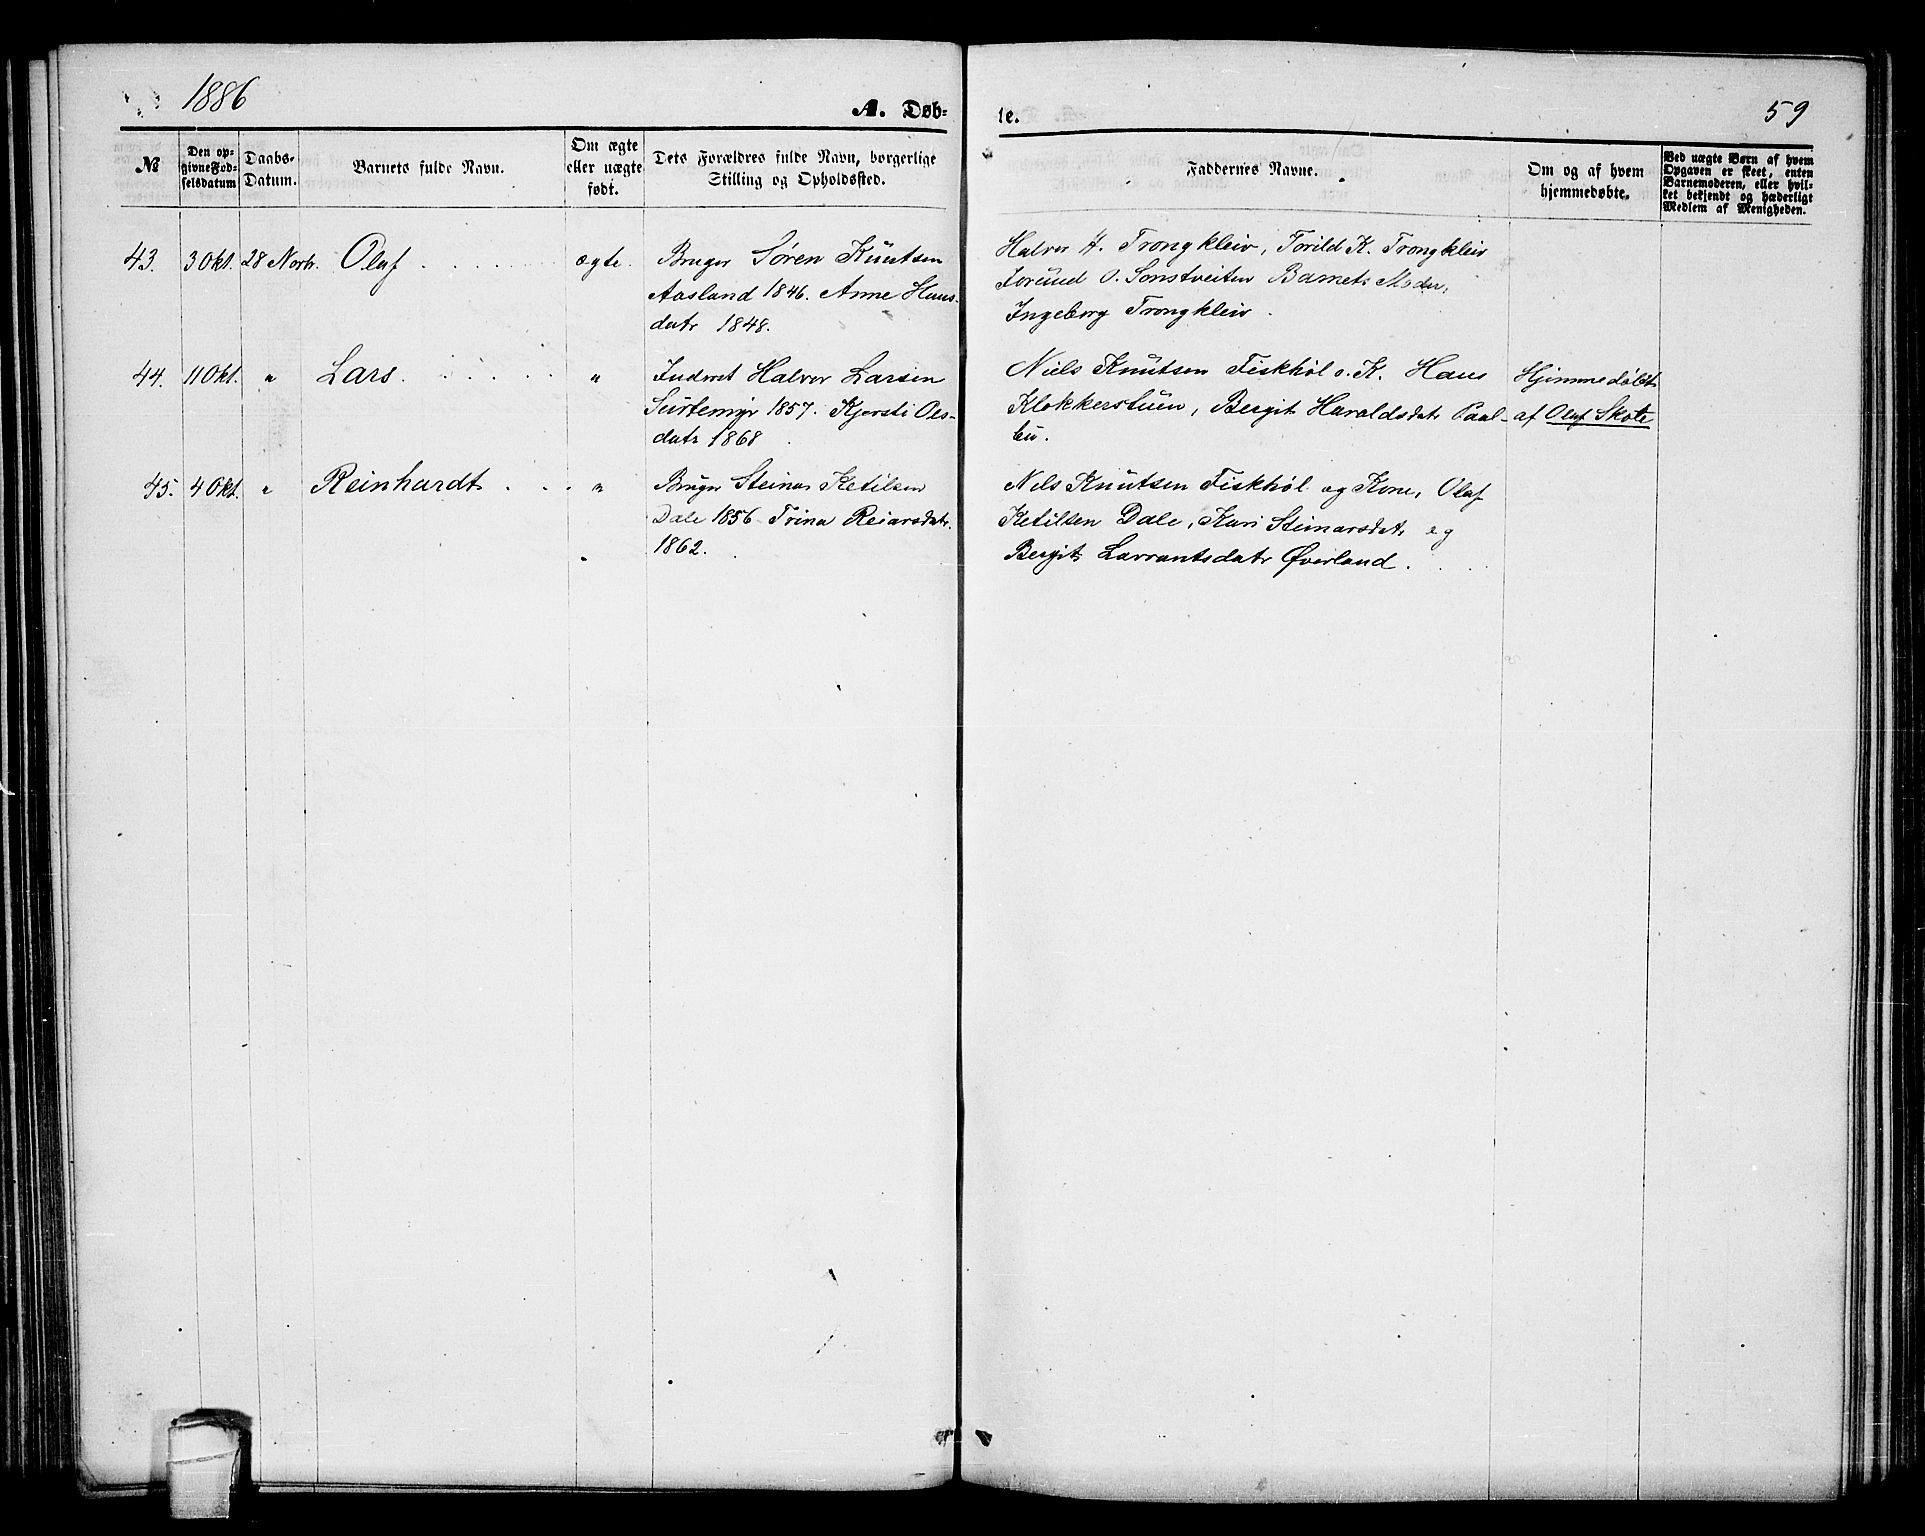 1886
A. Døb-
te.
59
№
Den op-
givne Fød-
selsdatum
Daabs-
Datum.
Barnets fulde Navn.
Om ægte
eller uægte
født.
Dets Forældres fulde Navn, borgerlige
Stilling og Opholdssted.
Faddernes Navne.
Om og af hvem
hjemmedøbte.
Ved uægte Børn af hvem
Opgaven er skeet, enten
Barnemoderen, eller hvil-
ket bekjendt og hæderligt
Medlem af Menigheden.
43. 3 Okt. 28 Novbr. Olaf ægte.
Bruger Søren Knutsen
Aasland 1846. Anne Hans-
datr 1848.
Halvor A. Trongkleiv, Torild K. Trongkleiv
Jorund O. Sonstveiten Barnets Moder,
Ingeborg Trongkleiv.
44. 11 Okt. " Lars. "
Inderst Halvor Larsen
Surtemyr 1857. Kjersti Ols-
datr 1868
Niels Knutsen Fiskhøl o. K. Hans
Klokkerstuen, Bergit Haraldsdatr Paal-
bu.
Hjemmedøbt
af Olaf Skole
45. 4 Okt. " Reinhardt "
Bruger Steinar Ketilsen
Dale 1856 Trina Reiarsdatr.
1862.
Nils Knutsen Fiskhøl og Kone, Olaf
Ketilsen Dale, Kari Steinarsdatr og
Bergit Lavrantsdatr Øverland.